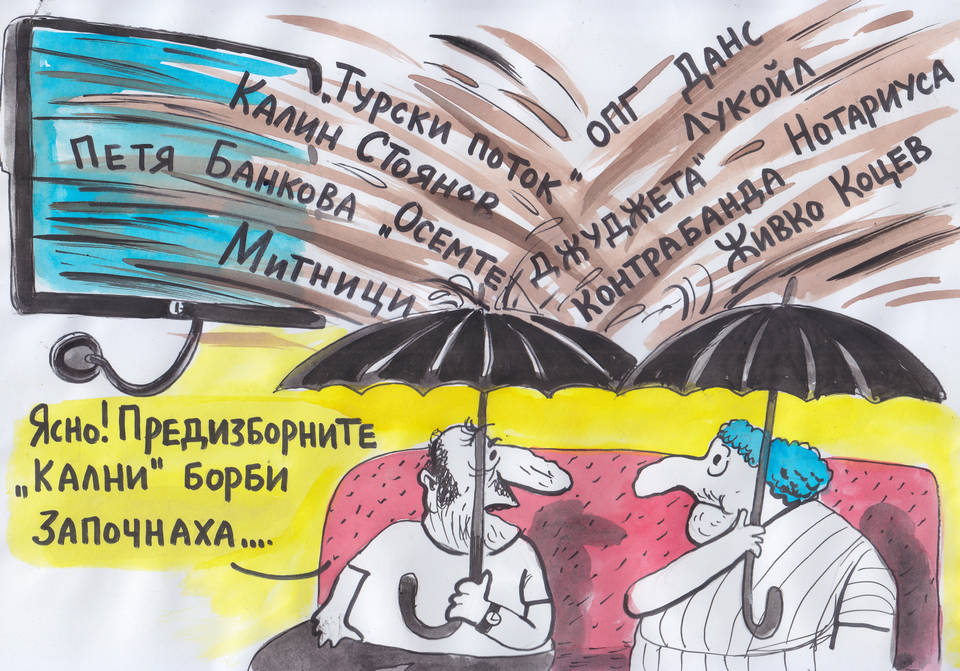 "Турски поток"
Калин Стоянов
Петя Банкова
"Осемте"
Митници
ОПГ Данс
Лукойл
Нотариуса
"Джуджета"
Контрабанда
Живко Коцев
Ясно! Предизборните
"Кални" борби
започнаха....